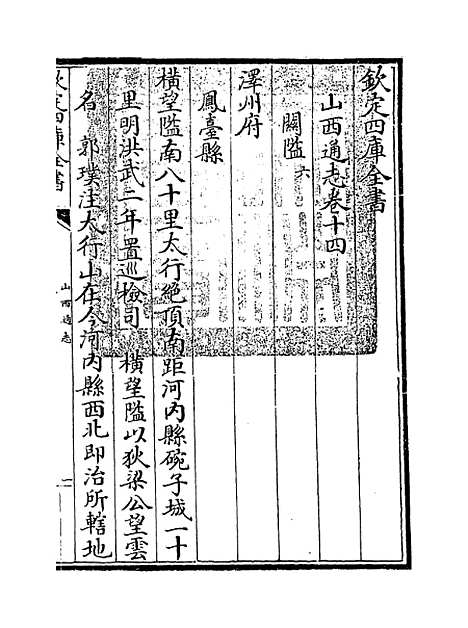 欽定四庫全書
山西通志卷十四
關隘六
澤州府
鳳臺縣
橫望隘南八十里太行絶頂南距河内縣碗子城一十
里明洪武二年置巡檢司 橫望隘以狄梁公望雲
名 郭璞注太行山在今河内縣西北即治所轄地
欽定四庫全書
山西通志
一